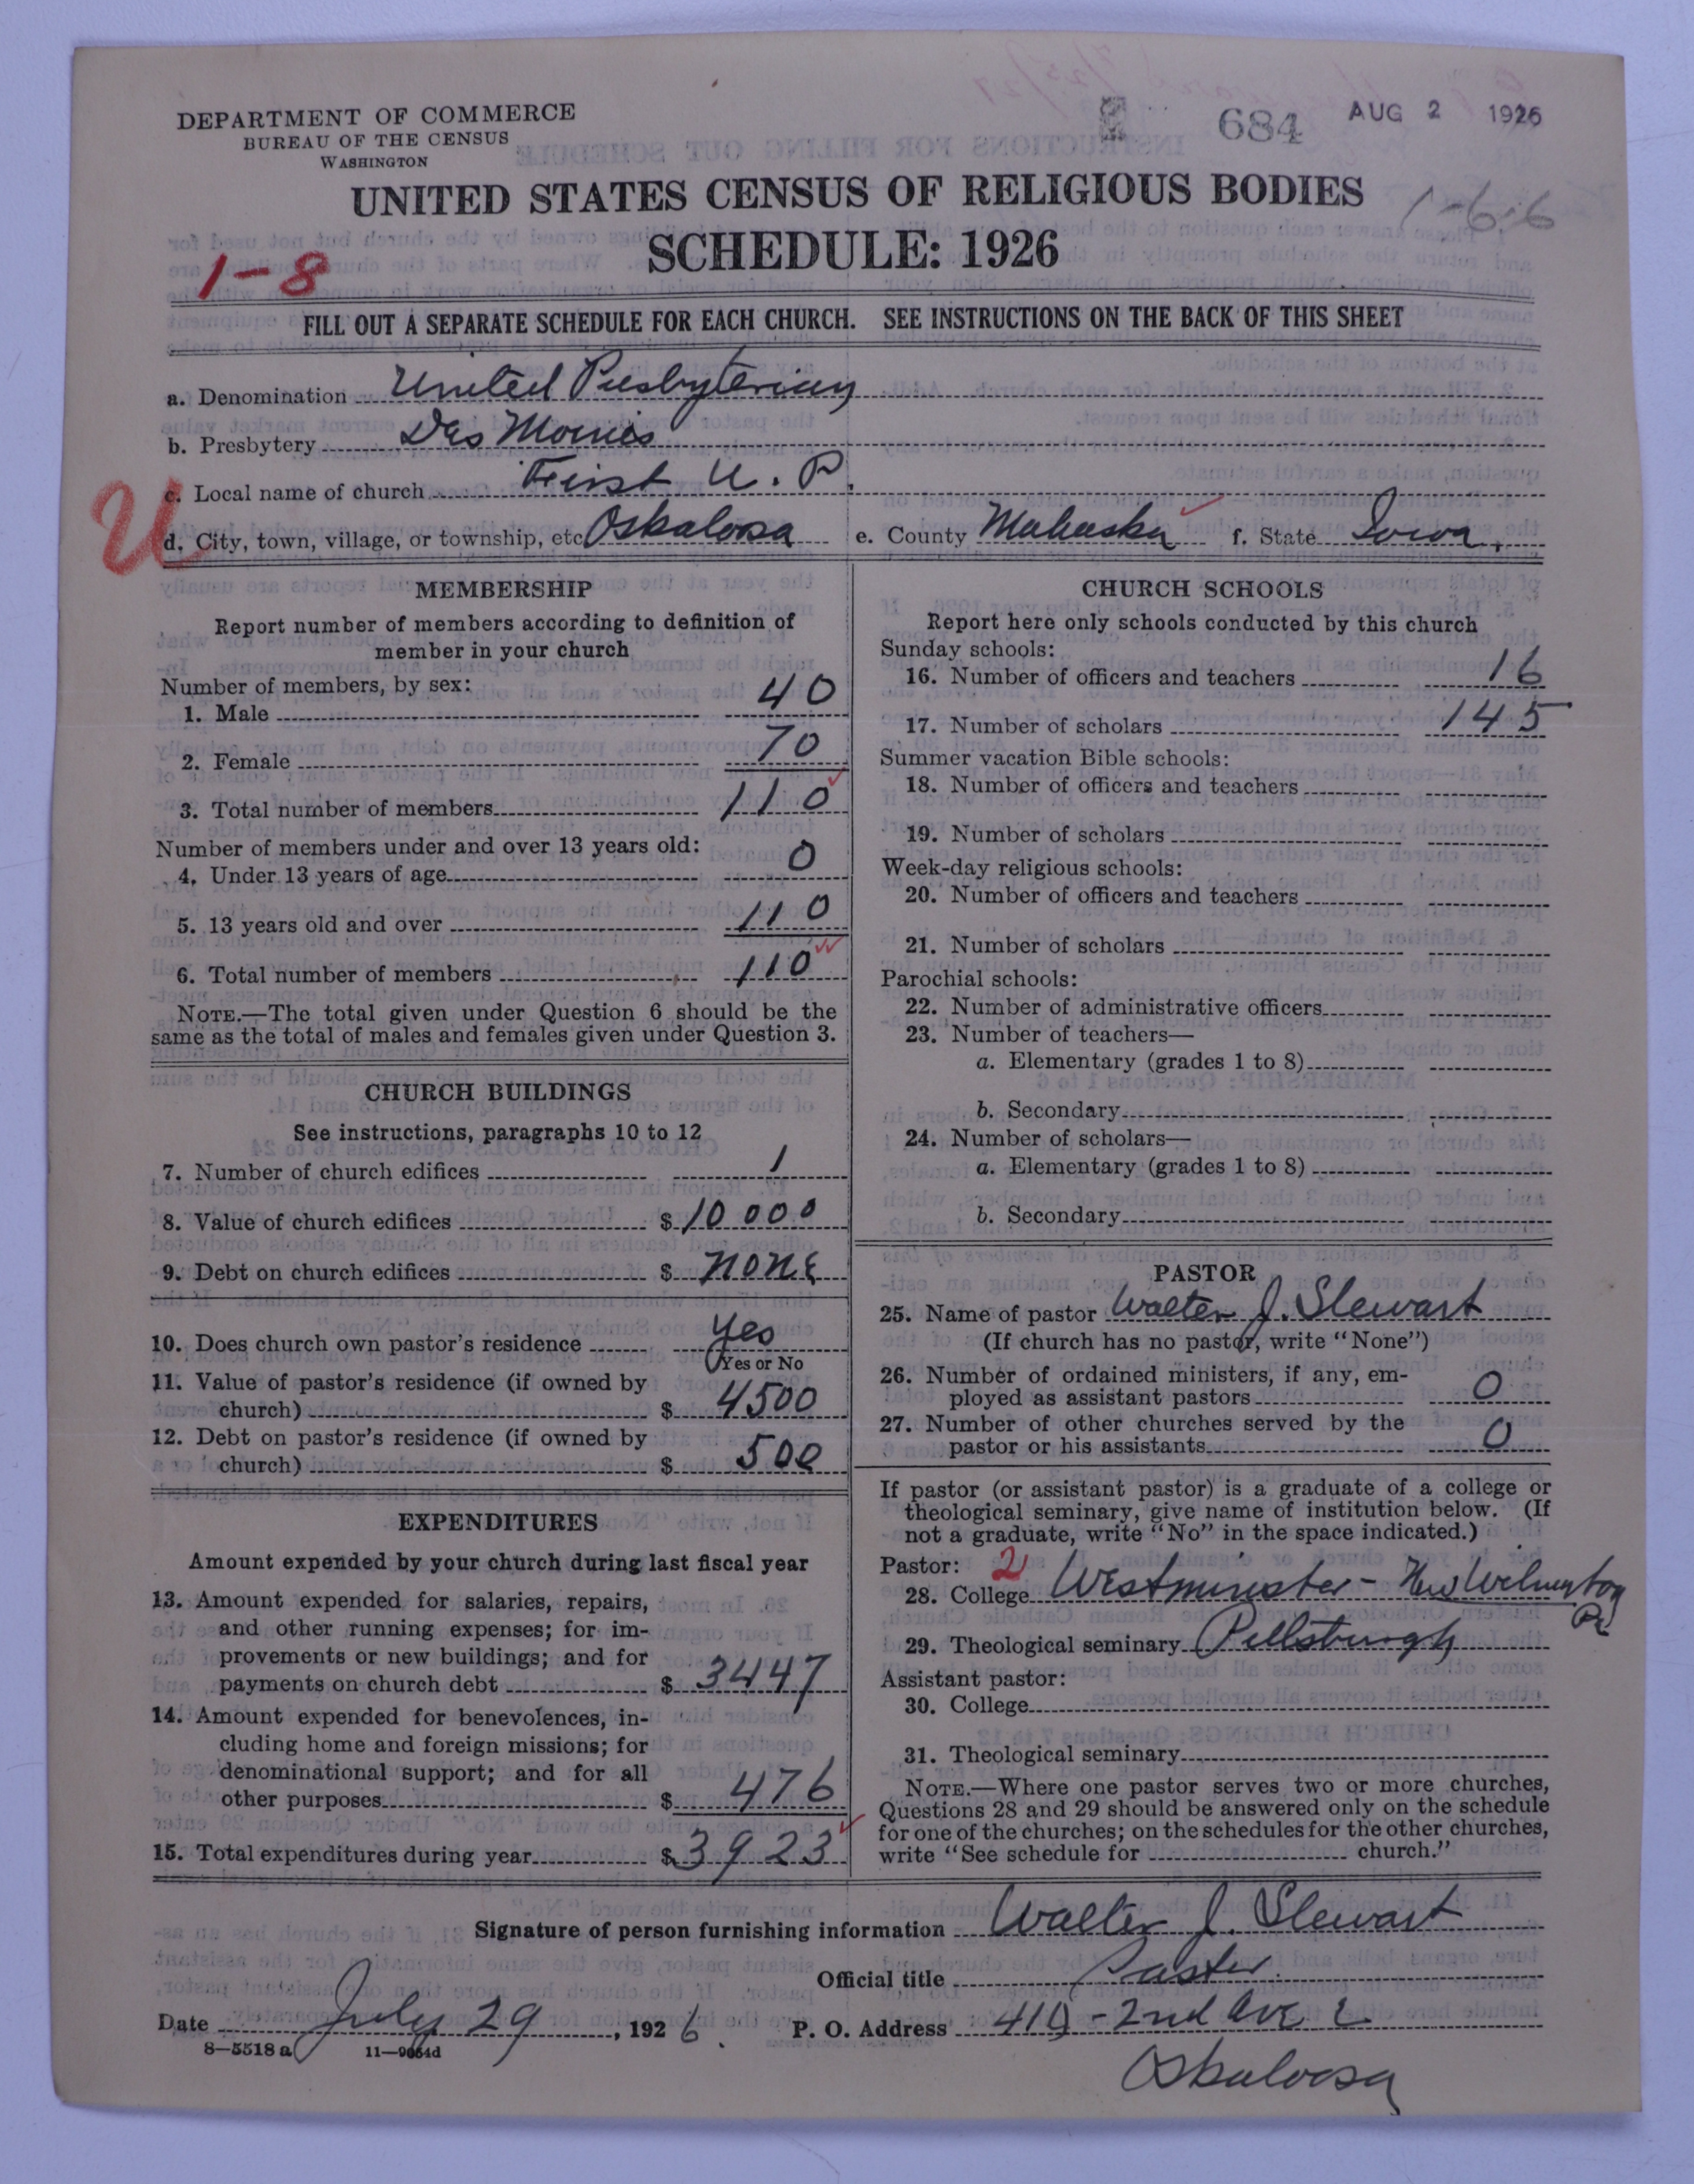 DEPARTMENT OF COMMERCE
BUREAU OF THE CENSUS
WASHINGTON
684 AUG 2 1926
UNITED STATES CENSUS OF RELIGIOUS BODIES
1-6.6
SCHEDULE: 1926
1-8
FILL OUT A SEPARATE SCHEDULE FOR EACH CHURCH. SEE INSTRUCTIONS ON THE BACK OF THIS SHEET
a. Denomination United Presbyterian
b. Presbytery Des Moines
c. Local name of church First U. P.
U
d. City, town, village, or township, etc. Oskaloosa e. County Mahaska f. State Iowa.
MEMBERSHIP
Report number of members according to definition of
member in your church
Number of members, by sex:
1. Male 40
2. Female 70
3. Total number of members 110
Number of members under and over 13 years old:
4. Under 13 years of age 0
5. 13 years old and over 110
6. Total number of members 110
NOTE.—The total given under Question 6 should be the
same as the total of males and females given under Question 3.
CHURCH BUILDINGS
See instructions, paragraphs 10 to 12
7. Number of church edifices 1
8. Value of church edifices $ 10000
9. Debt on church edifices $ none
10. Does church own pastor's residence yes
Yes or No
11. Value of pastor's residence (if owned by
church) $ 4500
12. Debt on pastor's residence (if owned by
church) $ 500
EXPENDITURES
Amount expended by your church during last fiscal year
13. Amount expended for salaries, repairs,
and other running expenses; for im-
provements or new buildings; and for
payments on church debt $ 3447
14. Amount expended for benevolences, in-
cluding home and foreign missions; for
denominational support; and for all
other purposes $ 476
15. Total expenditures during year $ 3923
CHURCH SCHOOLS
Report here only schools conducted by this church
Sunday schools:
16. Number of officers and teachers 16
17. Number of scholars 145
Summer vacation Bible schools:
18. Number of officers and teachers
19. Number of scholars
Week-day religious schools:
20. Number of officers and teachers
21. Number of scholars
Parochial schools:
22. Number of administrative officers
23. Number of teachers—
a. Elementary (grades 1 to 8)
b. Secondary
24. Number of scholars—
a. Elementary (grades 1 to 8)
b. Secondary
PASTOR
25. Name of pastor Walter J. Stewart
(If church has no pastor, write "None")
26. Number of ordained ministers, if any, em-
ployed as assistant pastors 0
27. Number of other churches served by the
pastor or his assistants 0
If pastor (or assistant pastor) is a graduate of a college or
theological seminary, give name of institution below. (If
not a graduate, write "No" in the space indicated.)
Pastor: 2
28. College Westminster - New Wilmington
Pa
29. Theological seminary Pittsburgh
Assistant pastor:
30. College
31. Theological seminary
NOTE.—Where one pastor serves two or more churches,
Questions 28 and 29 should be answered only on the schedule
for one of the churches; on the schedules for the other churches,
write "See schedule for church."
Signature of person furnishing information Walter J. Stewart
Official title Pastor
Date July 29, 1926. P. O. Address - 2nd Ave E
8—5518 a 11—9064d
Oskaloosa